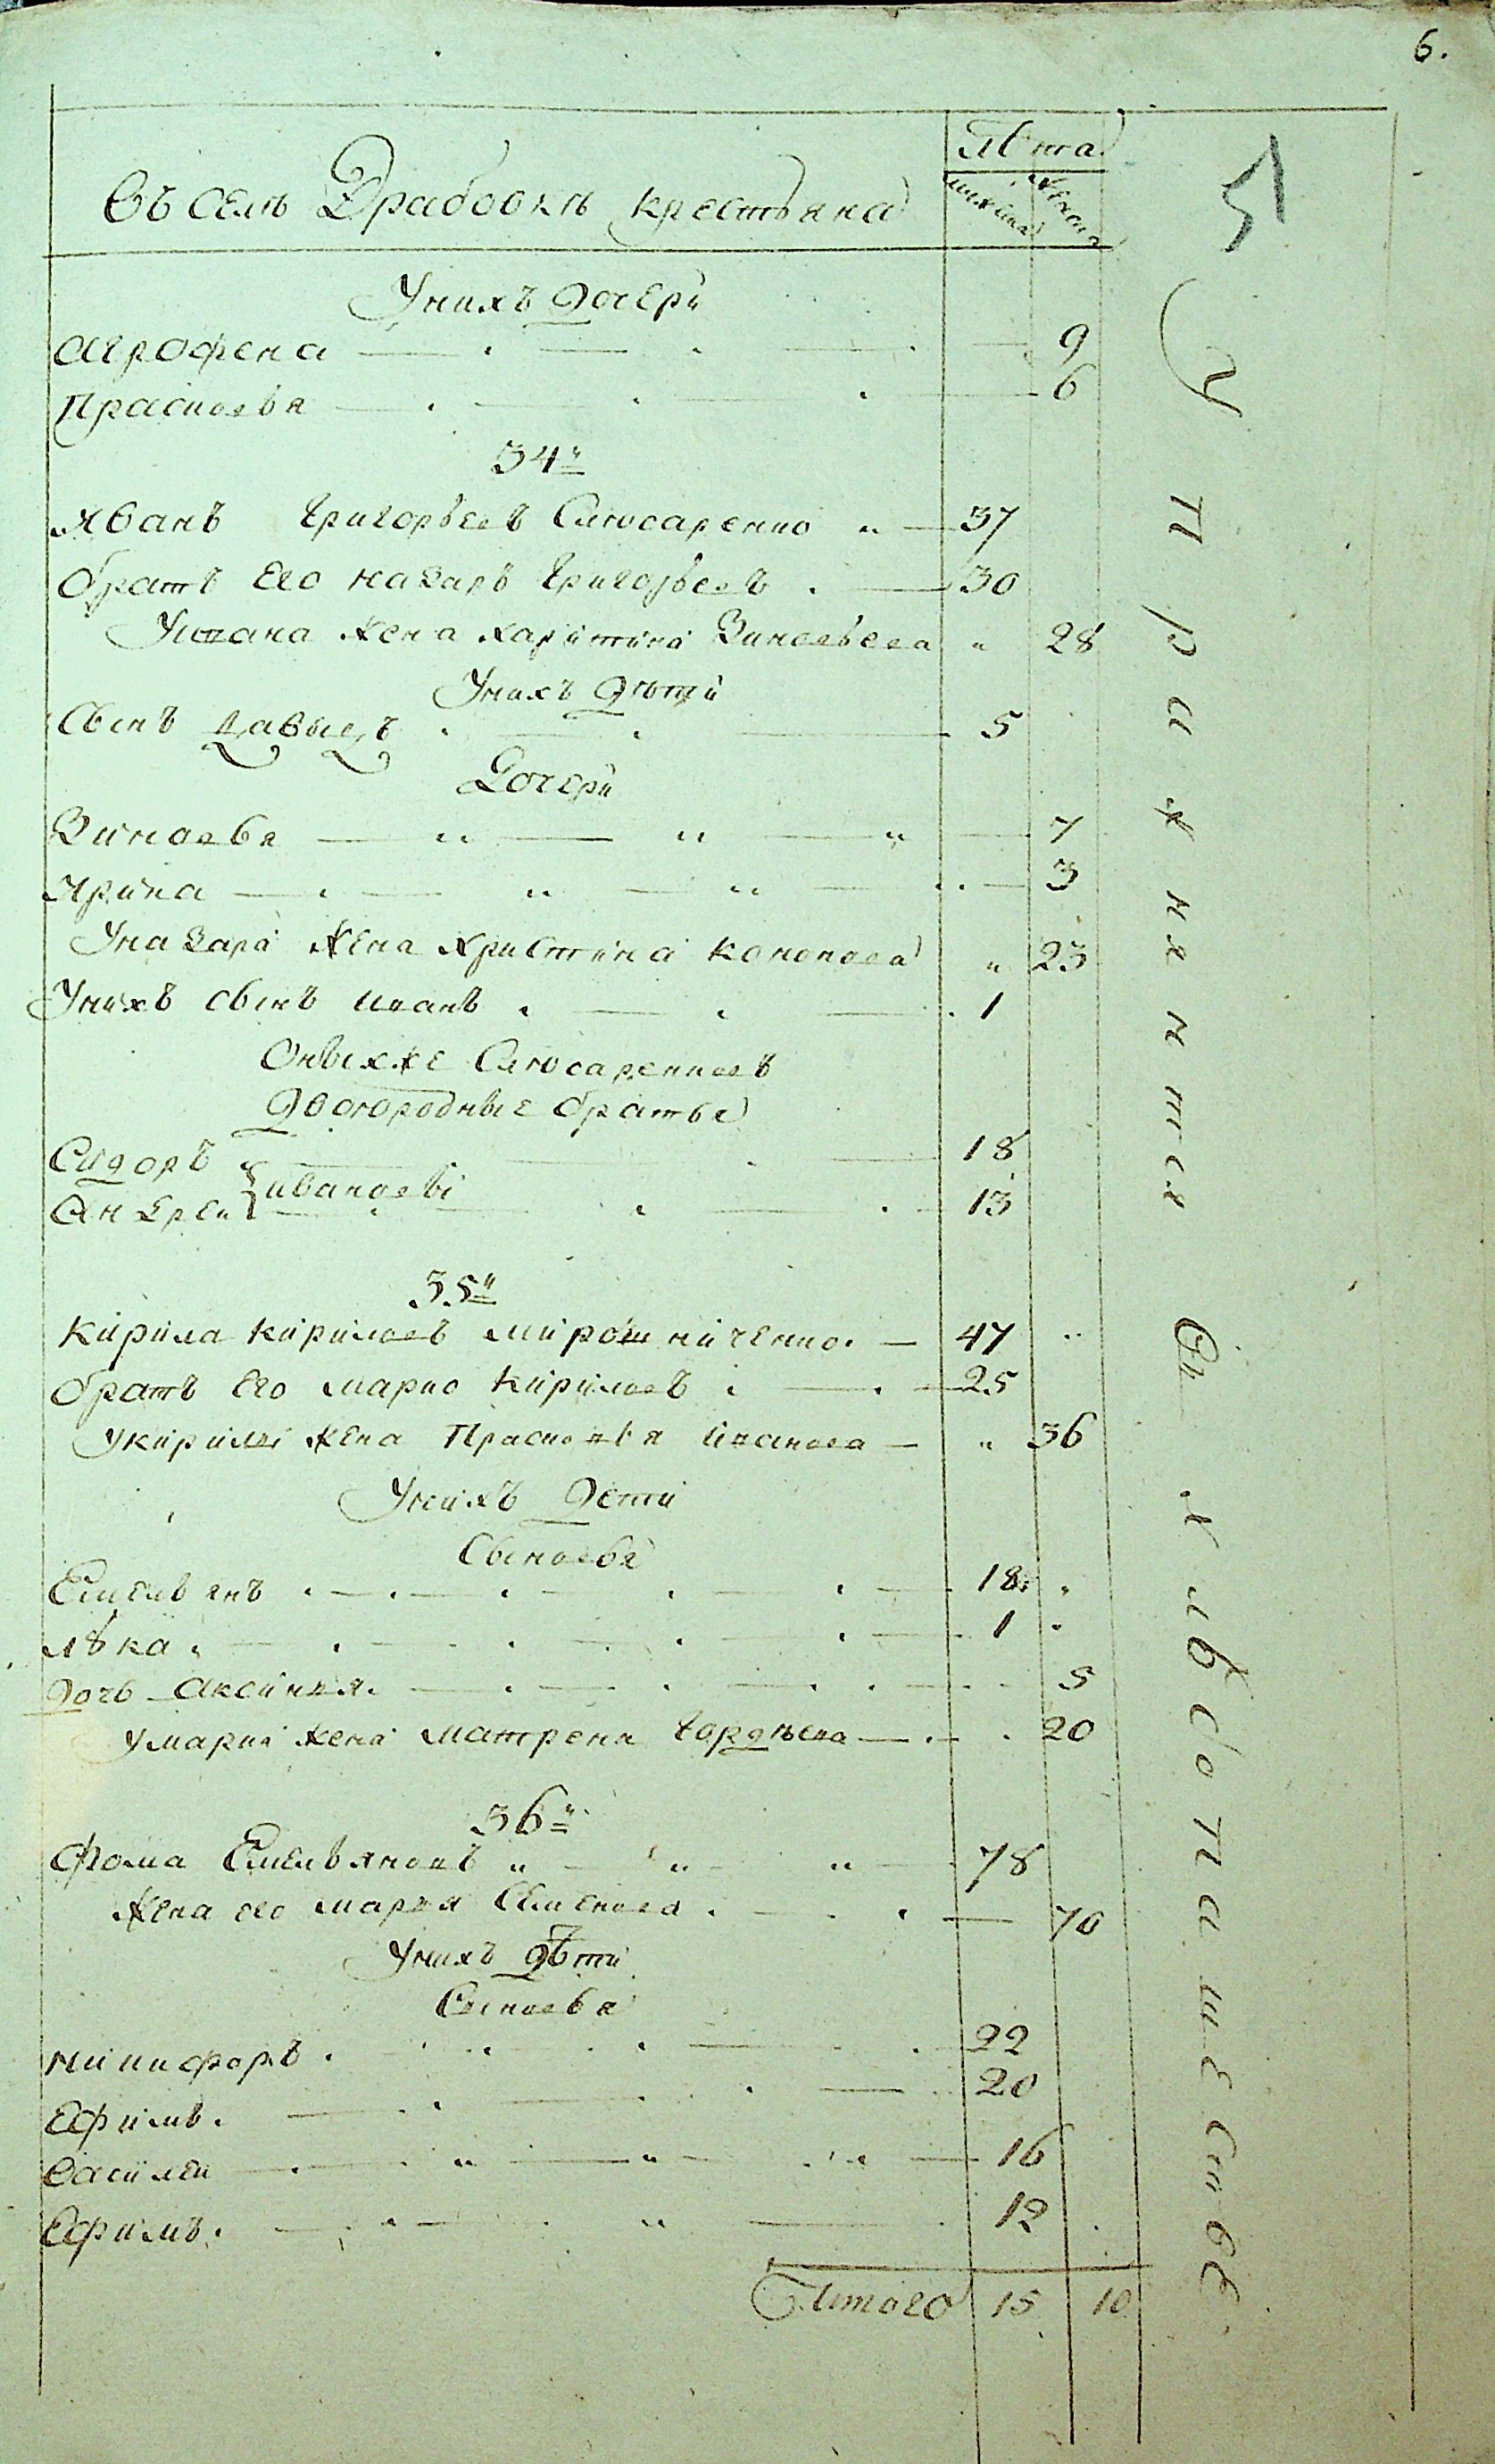 6.
Лѣта
Въ селѣ Драбовкѣ крестьяна
мужеска
женска
У нихъ дочери
Агрофена 9
Прасковья 6
34й
Иванъ Григорьевъ Слюсаренко 37
Братъ его Назаръ Григорьевъ 30
У Ивана жена Харитина Зиновьева 28
У нихъ дѣти
Сынъ Давыдъ 5
Дочери
Зиновья 7
Ирина 3
У Назара жена Христина Кононова 23
У нихъ сынъ Иванъ 1
Оныхже Слюсаренковъ
двоюродные братья
Сидоръ 18
Ивановы
Андрей 13
35й
Кирила Кириловъ Мирошниченко 47
Братъ его Марко Кириловъ 25
У Кирилы жена Прасковья Иванова 36
У нихъ дети
Сыновья
Емельянъ 18
Лѣка 1
Дочь Аксинья 5
У Марка жена Матрена Гордѣева 20
36й
Фома Емельяновъ 78
Жена его Марья Семенова 70
У нихъ дѣти
Сыновья
Никифоръ 22
Ефимъ 20
Василей 16
Ефимъ 12
Итого 15 10